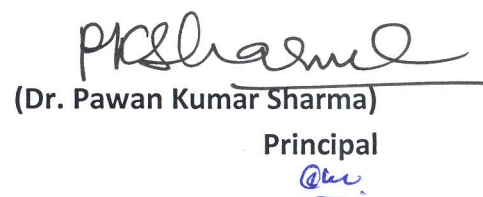 PKSharma
(Dr. Pawan Kumar Sharma)
Principal